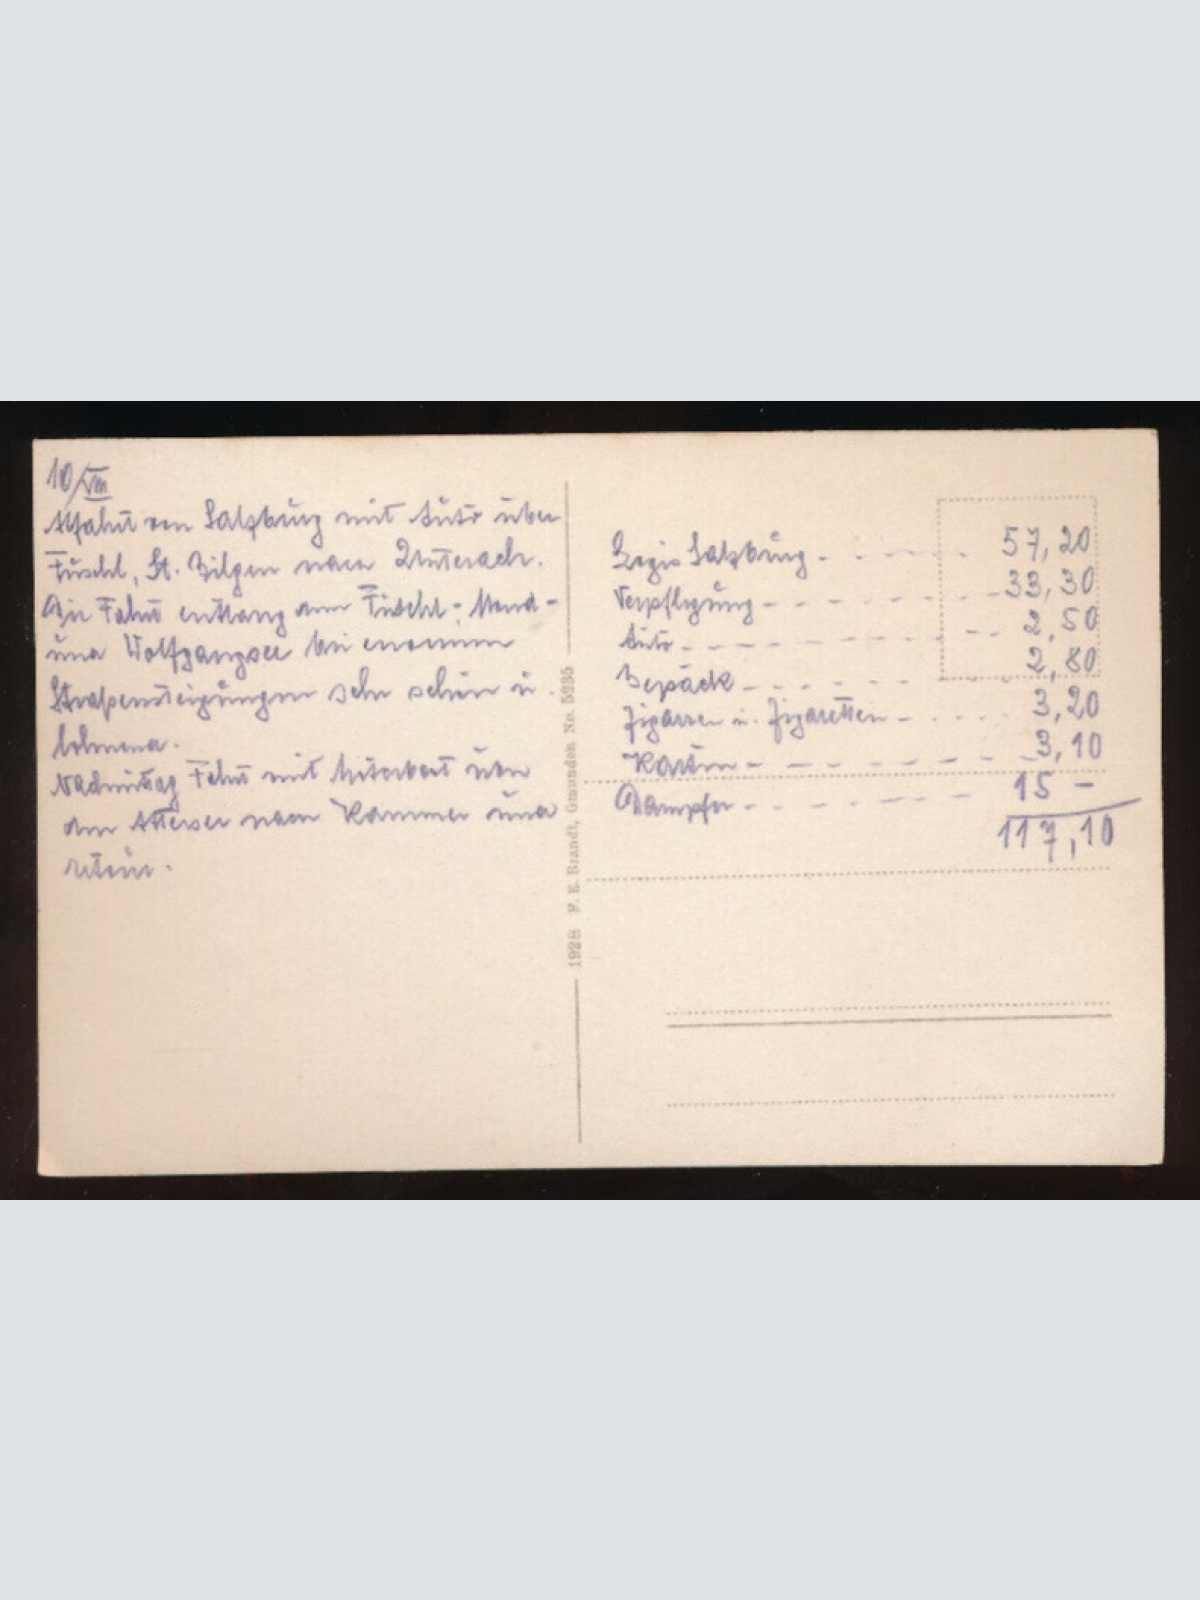 10/VIII
Abfahrt von Salzburg mit Auto über
Fuschl, St. Gilgen nach Unterach.
Die Fahrt entlang dem Fuschl-, Mond-
und Wolfgangsee bei enormen
Straßensteigungen sehr schön u.
lohnend.
Nachmittag Fahrt mit Motorboot über
den Attersee nach Kammer und
retour.
1928 F. E. Brandt, Gmunden No. 5235
Regie Salzburg - - - - - 57,20
Verpflegung - - - - - 33,30
Auto - - - - - 2,50
Gepäck - - - - - 2,80
Zigarren u. Zigaretten - - - - 3,20
Karten - - - - - 3,10
Dampfer - - - - - 15 -
117,10